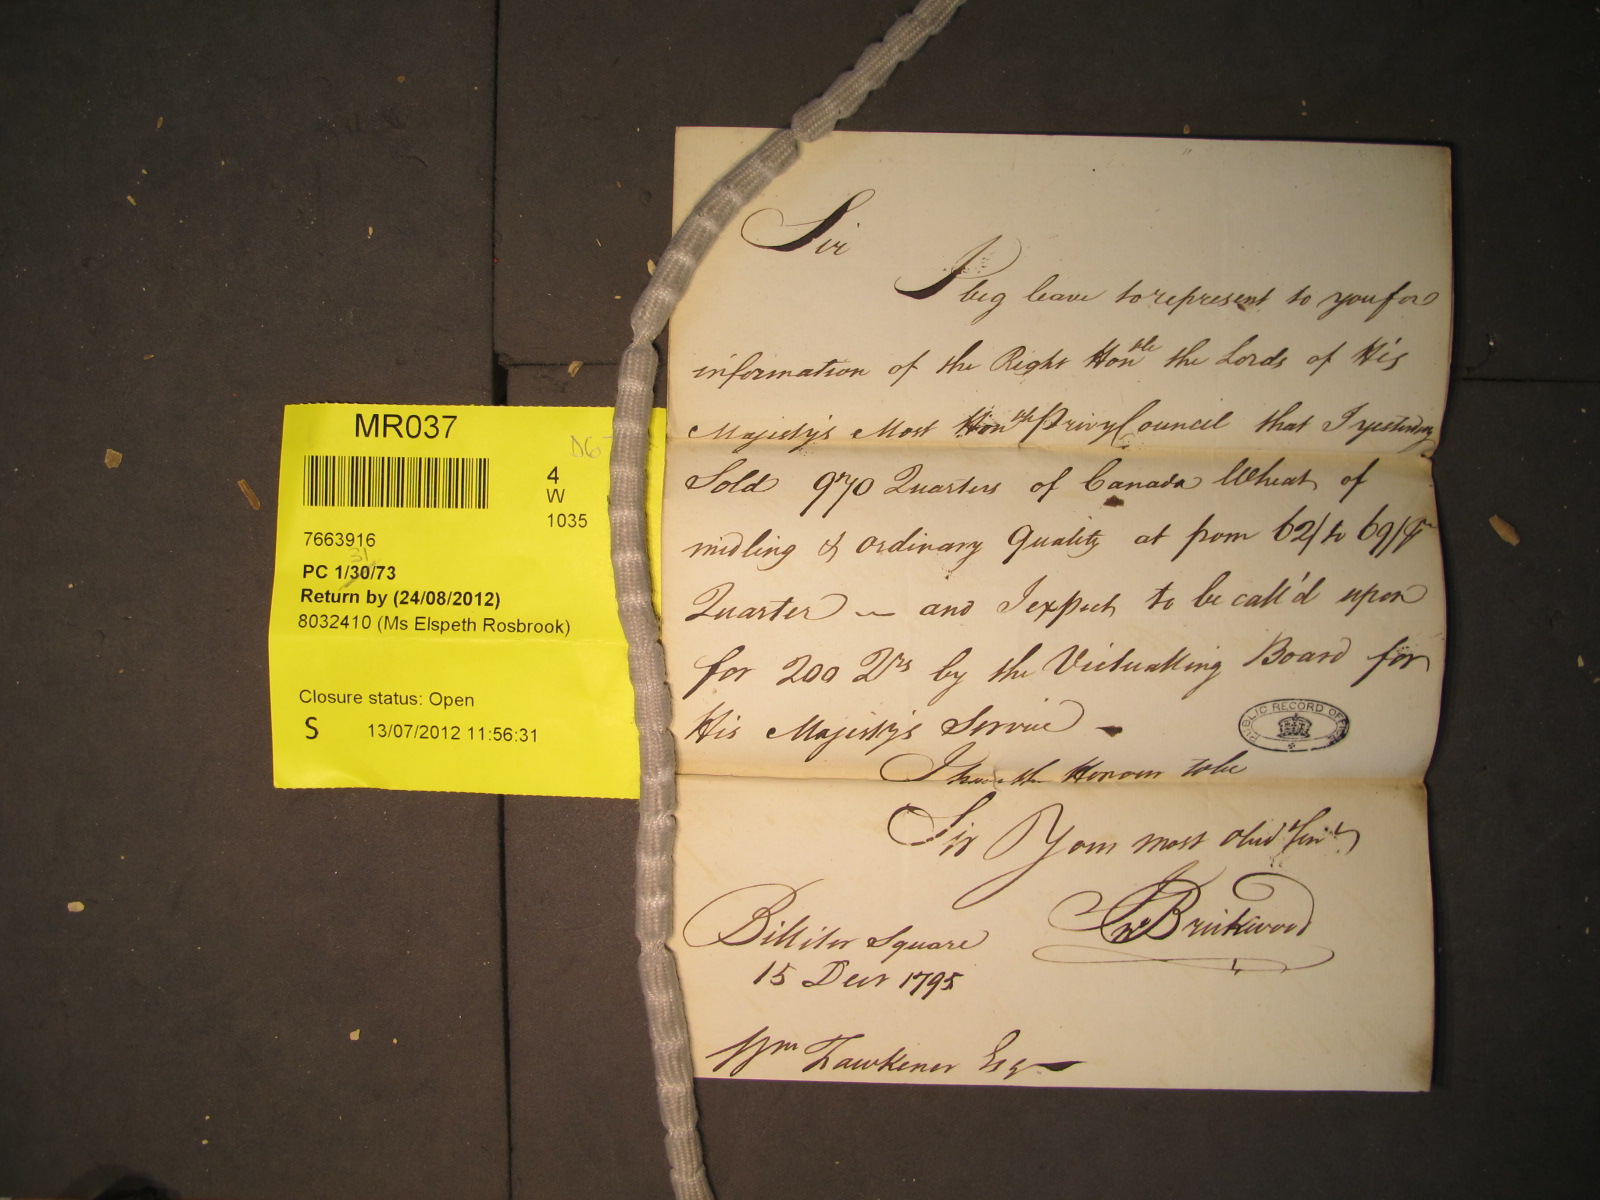 MR037
D6
4
W
1035
7663916
31
PC 1/30/73
Return by (24/08/2012)
8032410 (Ms Elspeth Rosbrook)
Closure status: Open
S 13/07/2012 11:56:31
Sir
I beg leave to represent to you for
information of the Right Honble the Lords of His
Majesty's Most Honble Privy Council that I yesterday
Sold 970 Quarters of Canada Wheat of
midling & ordinary Quality at from 62/ to 69/ Pr
Quarter — and I expect to be call'd upon
for 200 Qrs by the Victualling Board for
His Majesty's Service —
PUBLIC RECORD OFFICE
I have the Honour to be
Sir Your most Obed Servt
Jno Brickwood
Billiter Square
15 Decr 1795
Wm Fawkener Esq